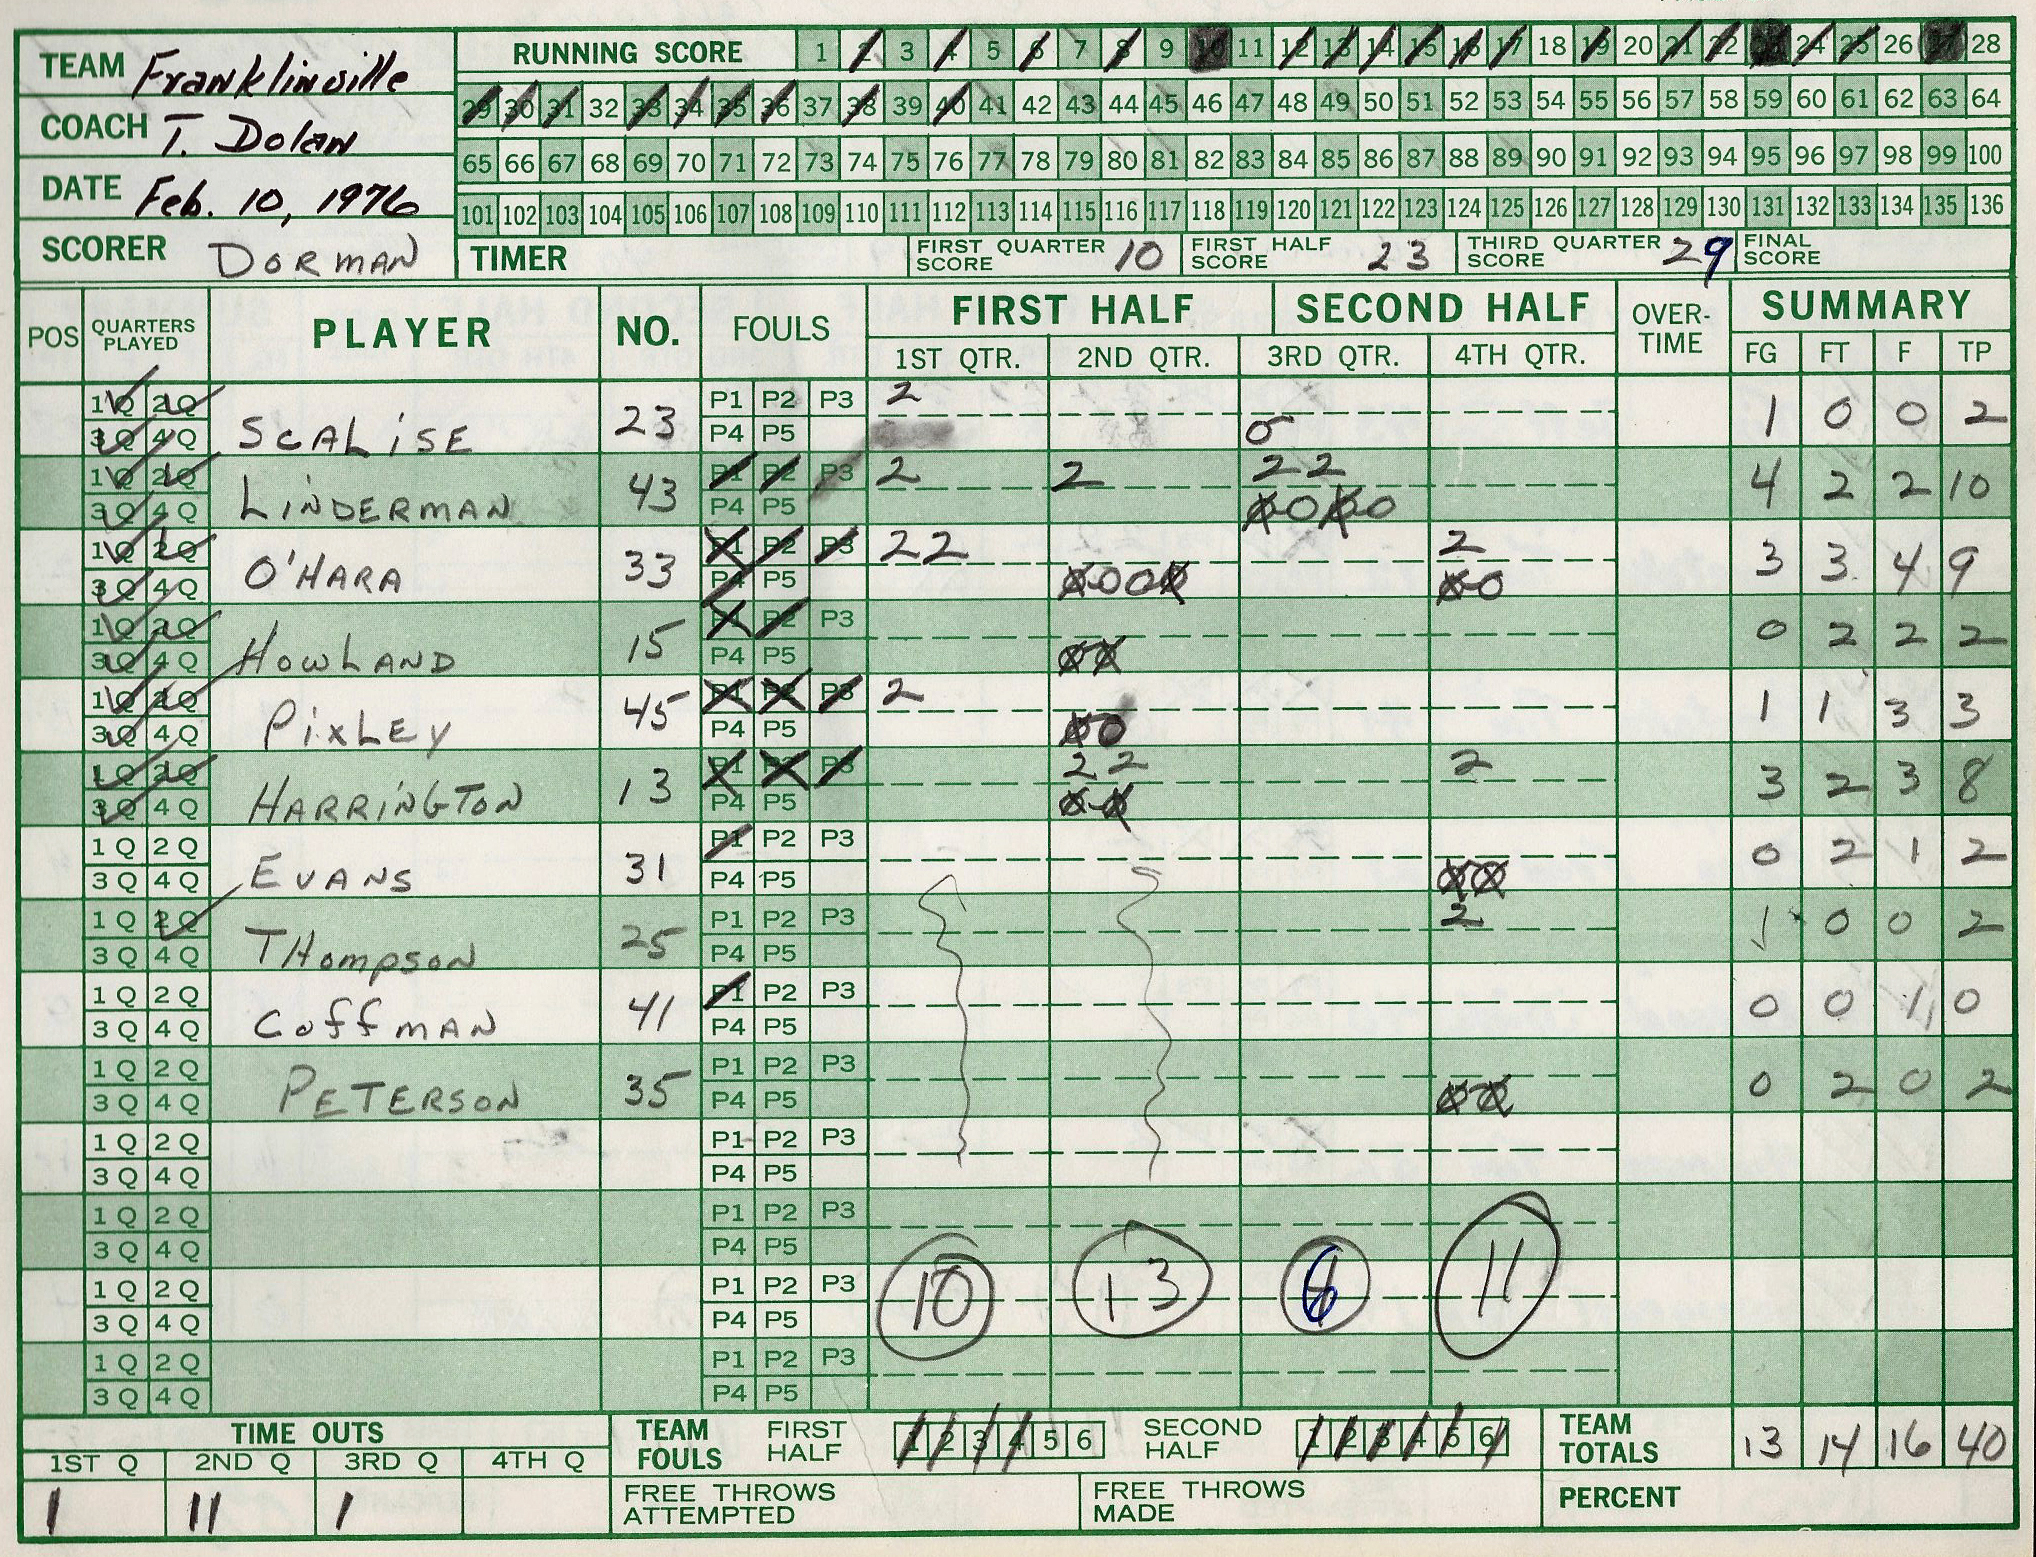 TEAM Franklinville
COACH T. Dolan
DATE Feb. 10, 1976
SCORER DORMAN
RUNNING SCORE 1 2 3 4 5 6 7 8 9 10 11 12 13 14 15 16 17 18 19 20 21 22 23 24 25 26 27 28
29 30 31 32 33 34 35 36 37 38 39 40 41 42 43 44 45 46 47 48 49 50 51 52 53 54 55 56 57 58 59 60 61 62 63 64
65 66 67 68 69 70 71 72 73 74 75 76 77 78 79 80 81 82 83 84 85 86 87 88 89 90 91 92 93 94 95 96 97 98 99 100
101 102 103 104 105 106 107 108 109 110 111 112 113 114 115 116 117 118 119 120 121 122 123 124 125 126 127 128 129 130 131 132 133 134 135 136
TIMER FIRST QUARTER SCORE 10 FIRST HALF SCORE 23 THIRD QUARTER SCORE 29 FINAL SCORE
POS QUARTERS PLAYED PLAYER NO. FOULS FIRST HALF SECOND HALF OVER-TIME SUMMARY
1ST QTR. 2ND QTR. 3RD QTR. 4TH QTR. FG FT F TP
1Q 2Q P1 P2 P3 2
3Q 4Q SCALISE 23 P4 P5 0 1 0 0 2
1Q 2Q P1 P2 P3 2 2 2 2
3Q 4Q LINDERMAN 43 P4 P5 0 0 0 0 4 2 2 10
1Q 2Q P1 P2 P3 2 2 2
3Q 4Q O'HARA 33 P4 P5 0 0 0 0 0 0 3 3 4 9
1Q 2Q P1 P2 P3
3Q 4Q HOWLAND 15 P4 P5 0 0 0 2 2 2
1Q 2Q P1 P2 P3 2
3Q 4Q PixLEY 45 P4 P5 0 0 1 1 3 3
1Q 2Q P1 P2 P3 2 2 2
3Q 4Q HARRINGTON 13 P4 P5 0 0 3 2 3 8
1Q 2Q P1 P2 P3
3Q 4Q EVANS 31 P4 P5 0 0 0 2 1 2
1Q 2Q P1 P2 P3 2
3Q 4Q THompson 25 P4 P5 1 0 0 2
1Q 2Q P1 P2 P3
3Q 4Q CoffMAN 41 P4 P5 0 0 1 0
1Q 2Q P1 P2 P3
3Q 4Q PETERSON 35 P4 P5 0 0 0 2 0 2
1Q 2Q P1 P2 P3
3Q 4Q P4 P5
1Q 2Q P1 P2 P3
3Q 4Q P4 P5
1Q 2Q P1 P2 P3 10 13 6 11
3Q 4Q P4 P5
1Q 2Q P1 P2 P3
3Q 4Q P4 P5
TIME OUTS
1ST Q 2ND Q 3RD Q 4TH Q
1 11 1
TEAM FOULS FIRST HALF 1 2 3 4 5 6 SECOND HALF 1 2 3 4 5 6
FREE THROWS ATTEMPTED FREE THROWS MADE
TEAM TOTALS 13 14 16 40
PERCENT